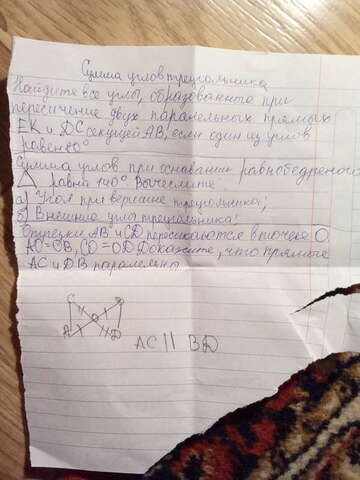 Сумма углов треугольника
Найдите все углы, образованного при
пересичение двух паралельных прямых
ЕК и DC секущей АВ, если один из углов
равен 60°
Сумма углов при основании равнобедреного
△ равна 140° Вычеслите
а) Угол при вершине треугольника;
б) Внешние углы треугольника!
Отрезки АВ и CD пересикаются в точке О
АО=ОВ, CO=OD Докажите, что прямые
АС и DB паралельны
C B
O
A D
AC || BD